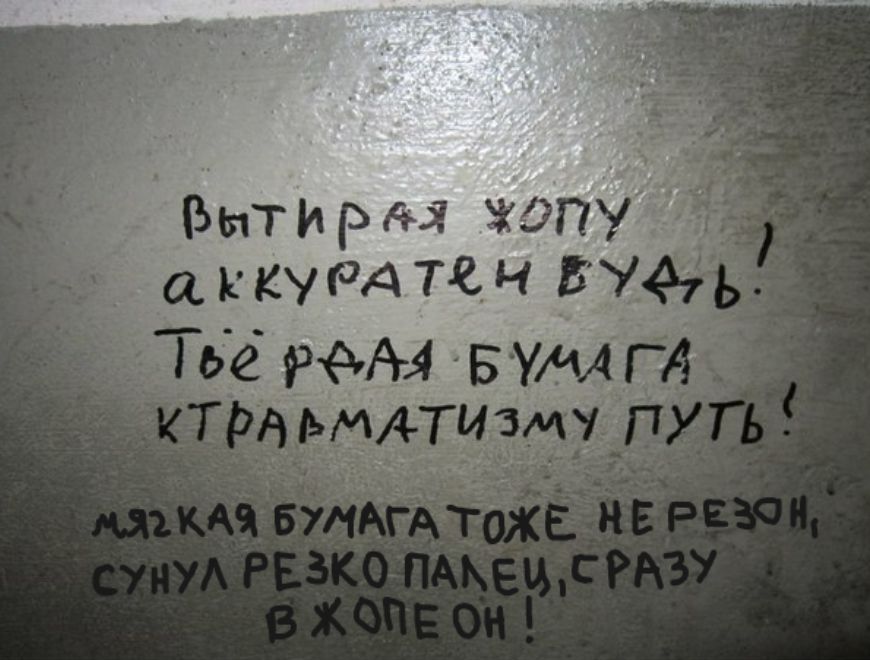 Вытирая жопу
аккуратен будь!
Твёрдая БУМАГА
К ТРАВМАТИЗМУ ПУТЬ!
МЯГКАЯ БУМАГА ТОЖЕ НЕ РЕЗОН,
СУНУЛ РЕЗКО ПАЛЕЦ, СРАЗУ
В ЖОПЕ ОН!